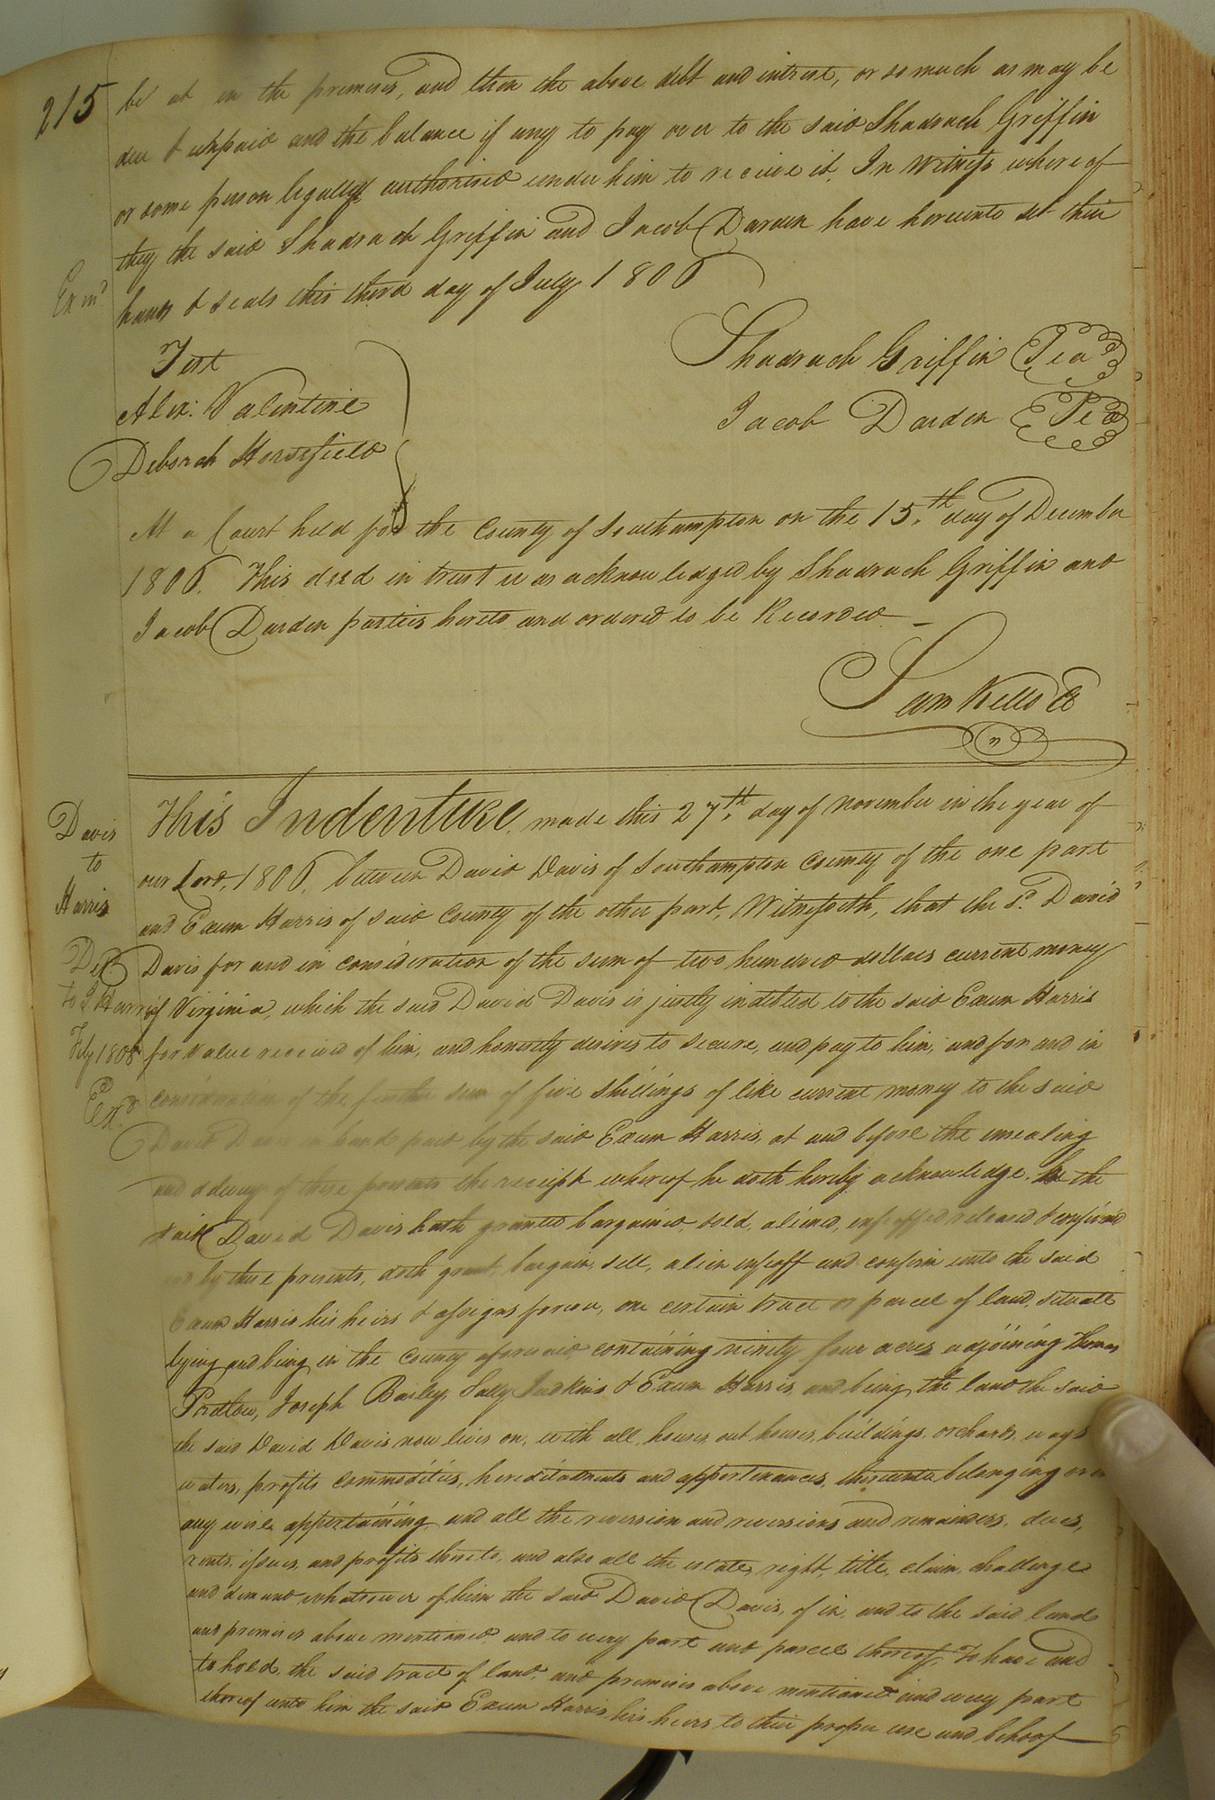 215
be at in the premises, and then the above debt and interest, or so much as may be
due & unpaid and the balance if any to pay over to the said Shadrach Griffin
or some person legally authorised under him to receive it. In Witness whereof
they the said Shadrach Griffin and Jacob Darden have hereunto set their
Exmd
hands & seals this third day of July 1806
Shadrach Griffin Seal
Jacob Darden Seal
Test
Alex: Valentine
Deborah Horsefield
At a Court held for the County of Southampton on the 15.th day of December
1806. This deed in trust was acknowledged by Shadrach Griffin and
Jacob Darden parties hereto and ordered to be Recorded
Sam Kello Cl
Davis
to
Harris
Deld
to E Harris
Feby 1808
Exd
This Indenture, made this 27th. day of November in the year of
our Lord, 1806, between David Davis of Southampton County of the one part
and Exum Harris of said County of the other part, Witnesseth, that the sd. David
Davis for and in consideration of the sum of two hundred dollars current money
of Virginia, which the said David Davis is justly indebted to the said Exum Harris
for value received of him, and honestly desires to secure, and pay to him, and for and in
consideration of the further sum of five shillings of like current money to the said
David Davis in hand paid by the said Exum Harris, at and before the ensealing
and delivery of these presents the receipt whereof he doth hereby acknowledge. he the
said David Davis hath granted bargained sold, aliened, enfeoffed released & confirmed
and by these presents, doth grant, bargain, sell, alien enfeoff and confirm unto the said
Exum Harris his heirs & assigns forever, one certain tract or parcel of land, situate
lying and being in the County aforesaid, containing ninety four acres adjoining Thomas
Pretlow, Joseph Bailey, Sally Judkins & Exum Harris, and being the land the said
the said David Davis now lives on, with all, houses, out houses, buildings, orchards, ways
waters, profits commodities, hereditaments and appertenances, thereunto belonging or in
any wise appertaining, and all the reversion and reversions and remainders, dues,
rents, issues, and profits thereto, and also all the estate, right, title, claim, challenge
and demand whatsoever of him the said David Davis, of in, and to the said land
and premises above mentioned and to every part and parcel thereof, To have and
to hold, the said tract of land, and premises above mentioned and every part
thereof unto him the said Exum Harris his heirs to their proper use and behoof